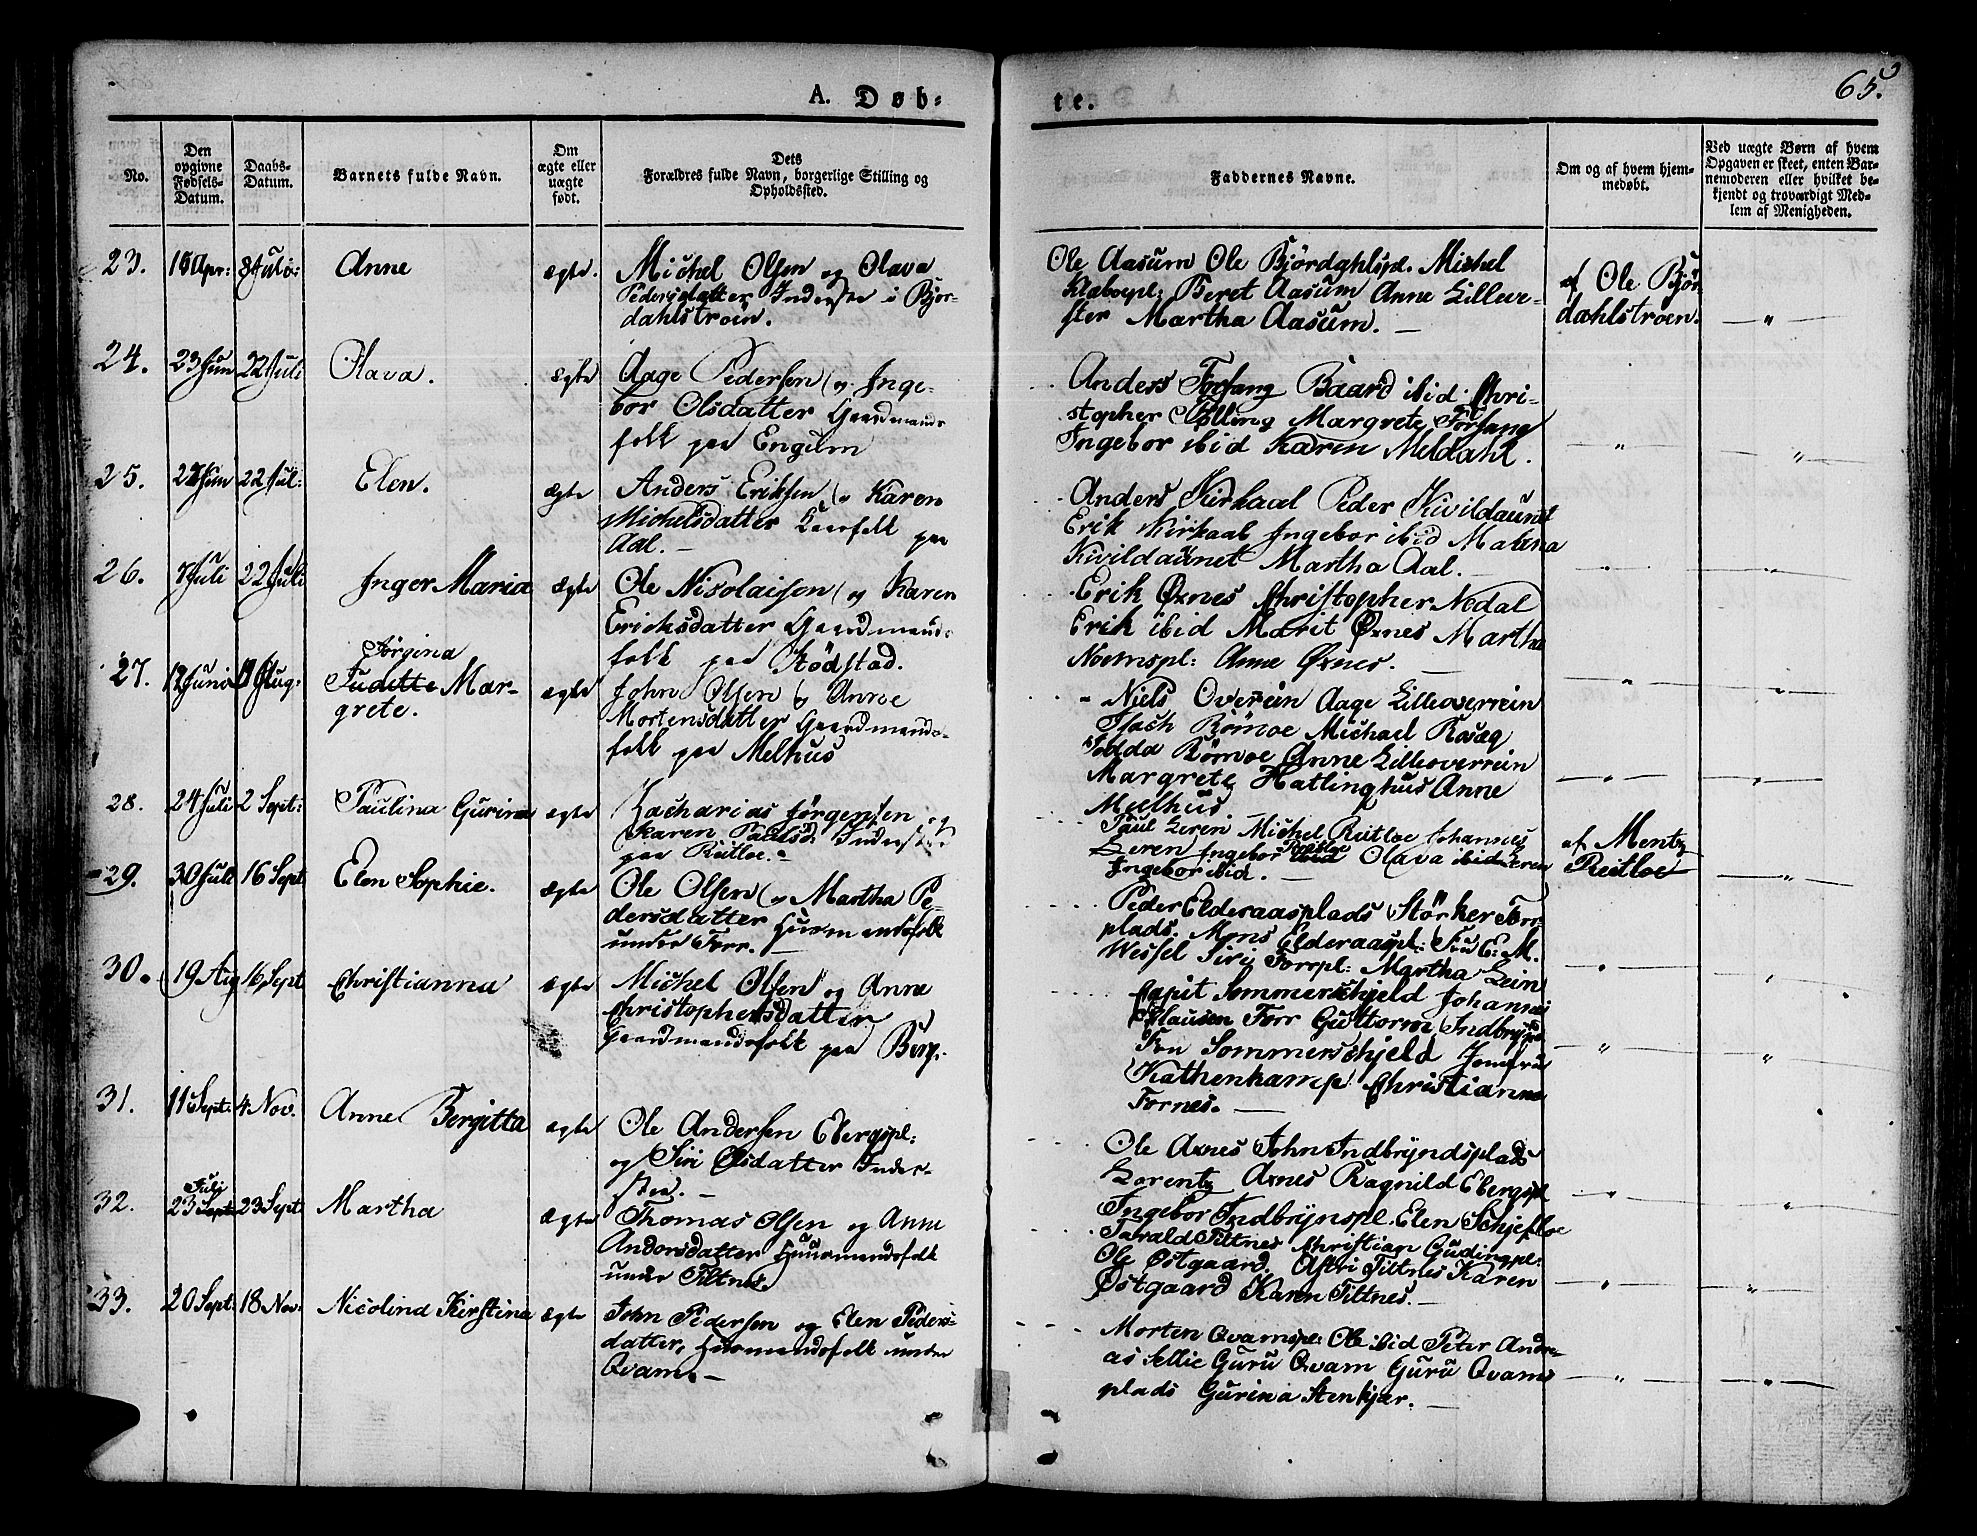 65.
A. Døb-
te.
No.
Den
opgivne
Fødsels-
Datum.
Daabs-
Datum.
Barnets fulde Navn.
Om
ægte eller
uægte
født.
Dets
Forældres fulde Navn, borgerlige Stilling og
Opholdssted.
Faddernes Navne.
Om og af hvem hjem-
medøbt.
Ved uægte Børn af hvem
Opgaven er skeet, enten Bar-
nemoderen eller hvilket be-
kjendt og troværdigt Med-
lem af Menigheden.
23. Apr: 8 Juli: Anne ægte. Michel Olsen og Olava
Pedersdatter Inderster i Bjør-
dahlstroen.
Ole Aasum Ole Björdahlspl. Michel
Klaboepl: Beret Aasum Anne Lilleve-
ster Martha Aasum. —
af Ole Bjør
dahlstroen. — " —
24. 23 Juni 22 Juli Olava. ægte Aage Pedersen og Inge-
bor Olsdatter Gaardmands
folk paa Engum
Anders Forfang Baard ibid Chri-
stopher Ølling Margrete Forfang
Ingebor ibid Karen Meldahl.
25. Juni 22 Jul: Elen. ægte Anders Eriksen og Karen
Michelsdatter Leiefolk paa
Aal. —
Anders Kirkaal Peder Kvildaunet
Erik Kirkaal Ingebor ibid Malena
Kvildaunet Martha Aal. —
26. Juli 22 Juli Inger Maria ægte Ole Nicolaisen og Karen
Ericksdatter Gaardmands
folk paa Rödstad.
Erik Øxnes Christopher Nedal
Erik ibid Marit Øxnes Martha
Noemspl: Anne Øxnes. —
27. 12 Juni Aug: Jørgina
Judette Mar-
grete. ægte John Olsen og Anne
Mortensdatter Gaardmands-
folk paa Melhus
Niels Overein Aage Lilleoverrein
Isach Römoe Michael Rosæg
Jodda Römoe Anne Lilleoverrein
Margrete Hatlinghus Anne
Melhus
28. 24 Juli 2 Sept: Paulina Gurina ægte Zacharias Jørgensen og
Karen Paulsd: Inderster
paa Rutloe. —
Paul Leren Michel Rutloe Johannes
Leren Ingebor Rutloe ibid Olava ibid Leren
Ingebor ibid. —
af Mentz
Reitloe
29. 30 Juli 16 Sept Elen Sophie. ægte Ole Olsen og Martha Pe-
dersdatter Huusmandsfolk
under Forr. —
Peder Elderaasplads Störker Forr-
plads. Mons Elderaaspl: Fru E: M.
Wessel Siri Forrpl: Martha Lein
30. 19 Aug 16 Sept Christianna ægte Michel Olsen og Anne
Christophersdatter
Gaardmandsfolk paa Berg.
Capit Sommerschjeld Johannes
Clausen Forr Guttorm Indbryn
Fru Sommerschjeld Jomfru
Kathenkamp Christianne
Fornes. —
31. 11 Sept: 4 Nov. Anne Bergitta ægte Ole Andersen Ebergspl:
og Siri Olsdatter Inder-
ster. —
Ole Axnes John Indbryndsplads
Lorentz Axnes Ragnild Ebergspl
Ingebor Indbrynspl. Elen Schjefloe
32. Juli
23 Sept 23 Sept Martha ægte Thomas Olsen og Anne
Andersdatter Huusmandsfolk
under Tiltnes.
Tarald Tiltnes Christian Gudingpl:
Ole Østgaard. Astri Tiltnes Karen
Østgaard Karen Tiltnes. —
33. 20 Sept: 18 Nov: Nicolina Kirstina ægte John Pedersen og Elen Peders-
datter, Huusmandsfolk under
Qvam. —
Morten Qvamspl: Ole ibid Peter Andre-
as Sellie Guru Qvam Guru Qvams
plads Gurina Stenkjær. —